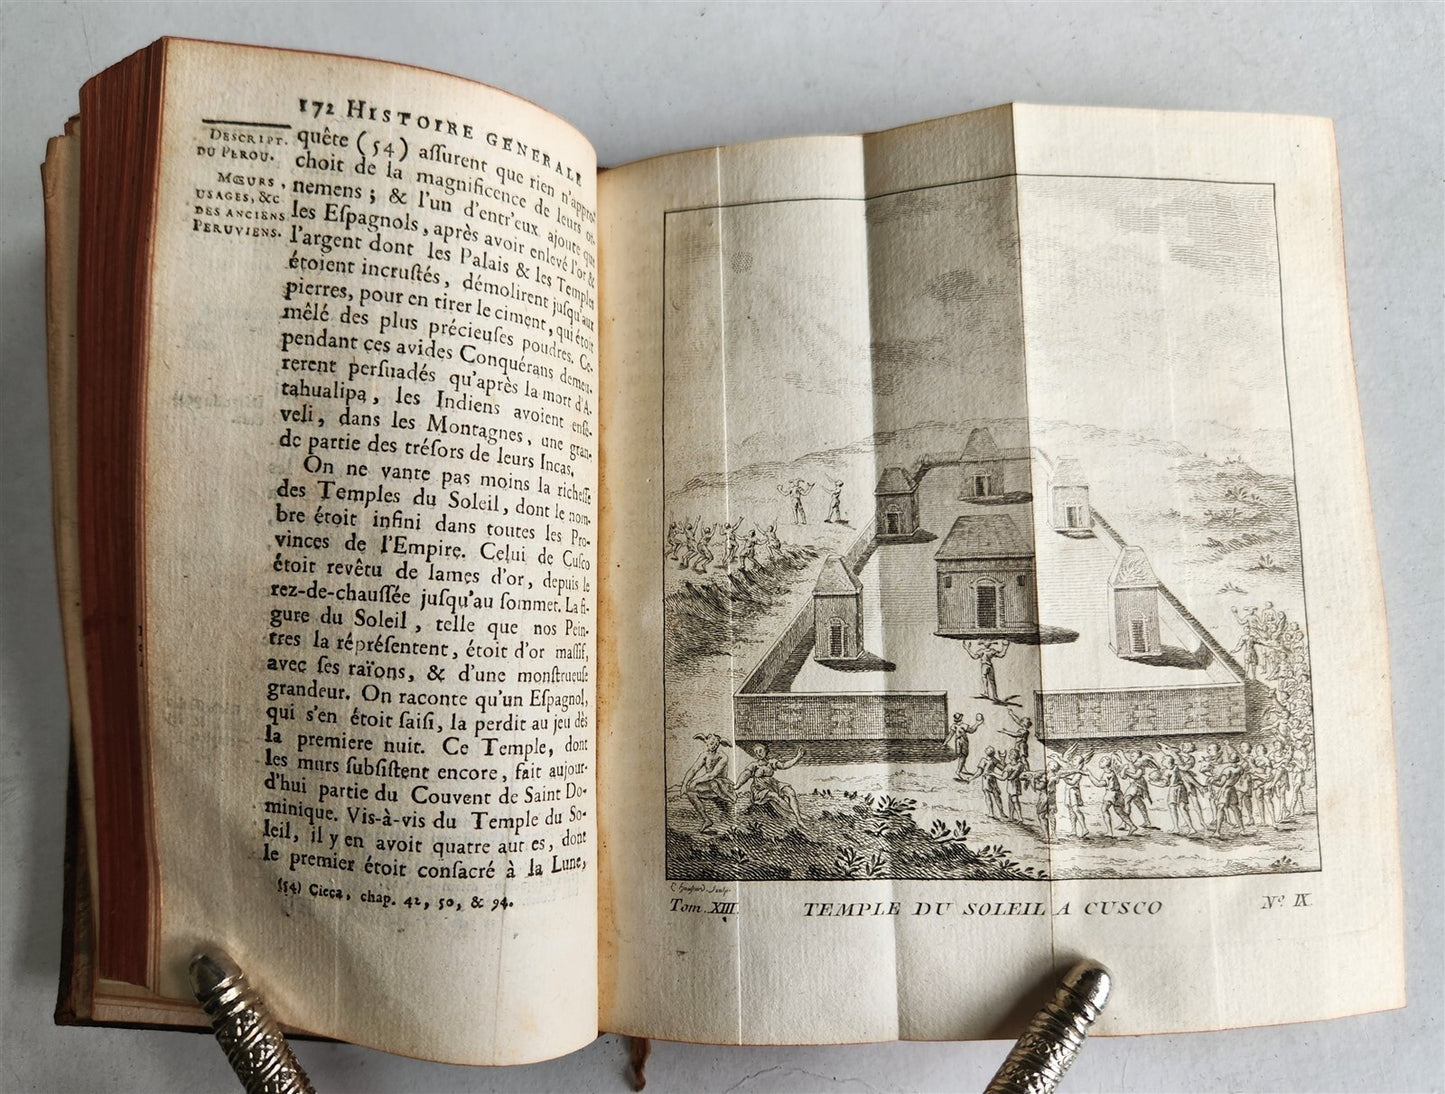 172 HISTOIRE GENERALE
DESCRIPT.
DU PEROU.
MŒURS,
USAGES, &c
DES ANCIENS
PERUVIENS.
quête (54) assurent que rien n'appro-
choit de la magnificence de leurs or-
nemens ; & l'un d'entr'eux ajoute que
les Espagnols, après avoir enlevé l'or &
l'argent dont les Palais & les Temples
étoient incrustés, démolirent jusqu'aux
pierres, pour en tirer le ciment, qui étoit
mêlé des plus précieuses poudres. Ce-
pendant ces avides Conquérans demeu-
rerent persuadés qu'après la mort d'A-
tahualipa, les Indiens avoient ense-
veli, dans les Montagnes, une gran-
de partie des trésors de leurs Incas.
On ne vante pas moins la richesse
des Temples du Soleil, dont le nom-
bre étoit infini dans toutes les Pro-
vinces de l'Empire. Celui de Cusco
étoit revêtu de lames d'or, depuis le
rez-de-chaussée jusqu'au sommet. La fi-
gure du Soleil, telle que nos Pein-
tres la réprésentent, étoit d'or massif,
avec ses raïons, & d'une monstrueuse
grandeur. On raconte qu'un Espagnol,
qui s'en étoit saisi, la perdit au jeu dès
la premiere nuit. Ce Temple, dont
les murs subsistent encore, fait aujour-
d'hui partie du Couvent de Saint Do-
minique. Vis-à-vis du Temple du So-
leil, il y en avoit quatre autres, dont
le premier étoit consacré à la Lune,
(54) Cieca, chap. 42, 50, & 94.
Sculp.
Tom. XIII.
TEMPLE DU SOLEIL A CUSCO
Nº. IX.